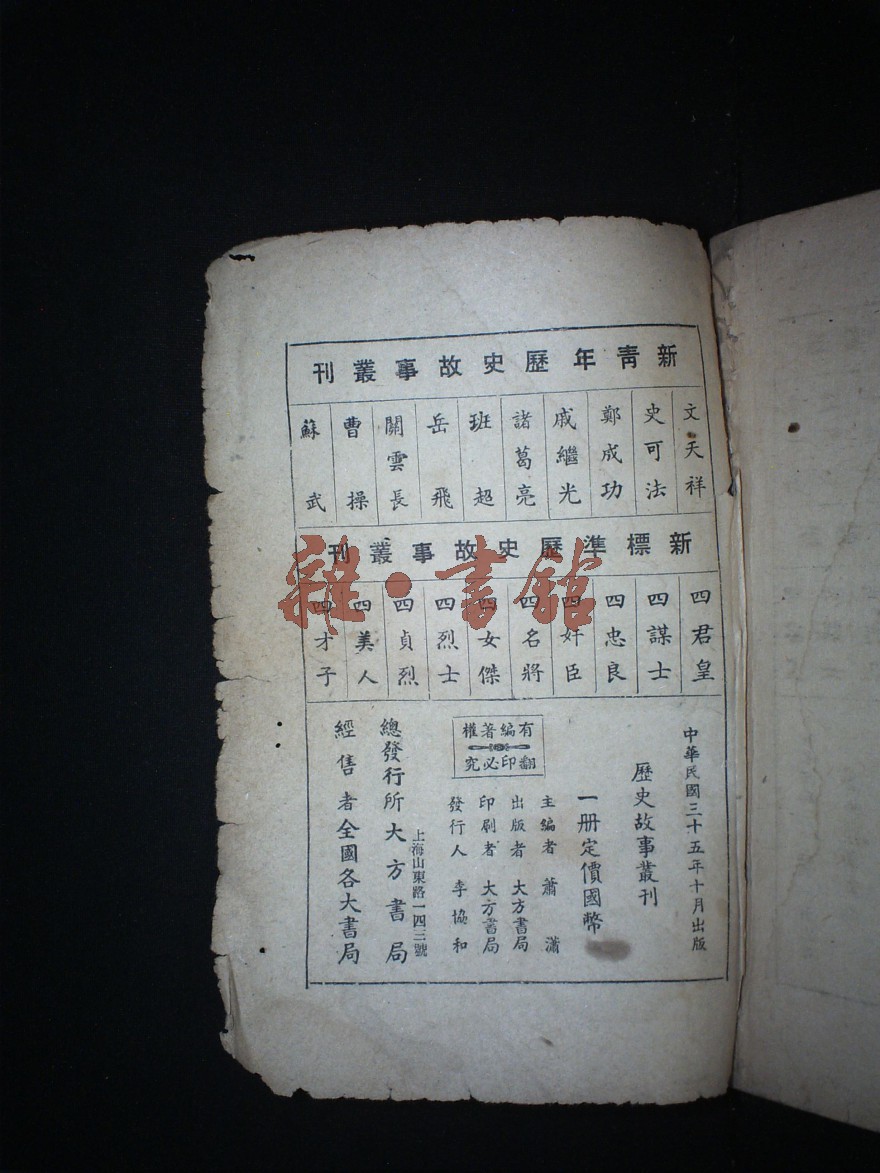 新青年歷史故事叢刊
文天祥
史可法
鄭成功
戚繼光
諸葛亮
班超
岳飛
關雲長
曹操
蘇武
新標準歷史故事叢刊
四君皇
四謀士
四忠良
四奸臣
四名將
四女傑
四烈士
四貞烈
四美人
四才子
雜·書館
中華民國三十五年十月出版
歷史故事叢刊
一册定價國幣
有編著權
翻印必究
主編者 蕭瀟
出版者 大方書局
印刷者 大方書局
發行人 李協和
上海山東路一四三號
總發行所 大方書局
經售者 全國各大書局